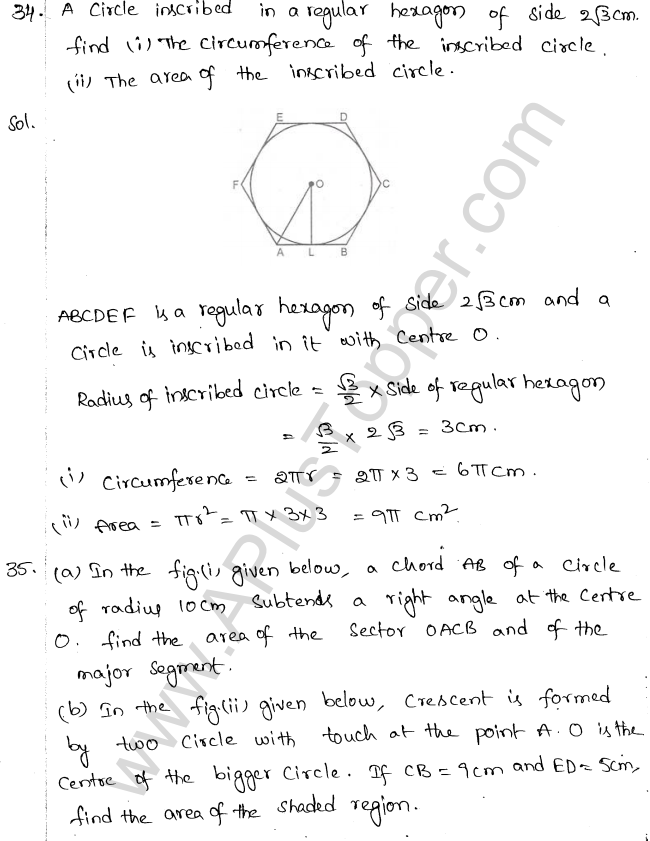 34. A Circle inscribed in a regular hexagon of side 2√3cm.
find (i) The circumference of the inscribed circle.
(ii) The area of the inscribed circle.
Sol.
E D
F O C
A L B
ABCDEF is a regular hexagon of side 2√3cm and a
Circle is inscribed in it with Centre O.
Radius of inscribed circle = √3/2 × Side of regular hexagon
= √3/2 × 2√3 = 3cm.
(i) Circumference = 2πr = 2π×3 = 6πcm.
(ii) Area = πr² = π×3×3 = 9π cm²
35. (a) In the fig.(i) given below, a chord AB of a Circle
of radius 10cm Subtends a right angle at the Centre
O. find the area of the Sector OACB and of the
major Segment.
(b) In the fig.(ii) given below, Crescent is formed
by two Circle with touch at the point A. O is the
Centre of the bigger Circle. If CB = 9cm and ED = 5cm,
find the area of the shaded region.
www.APlusTopper.com